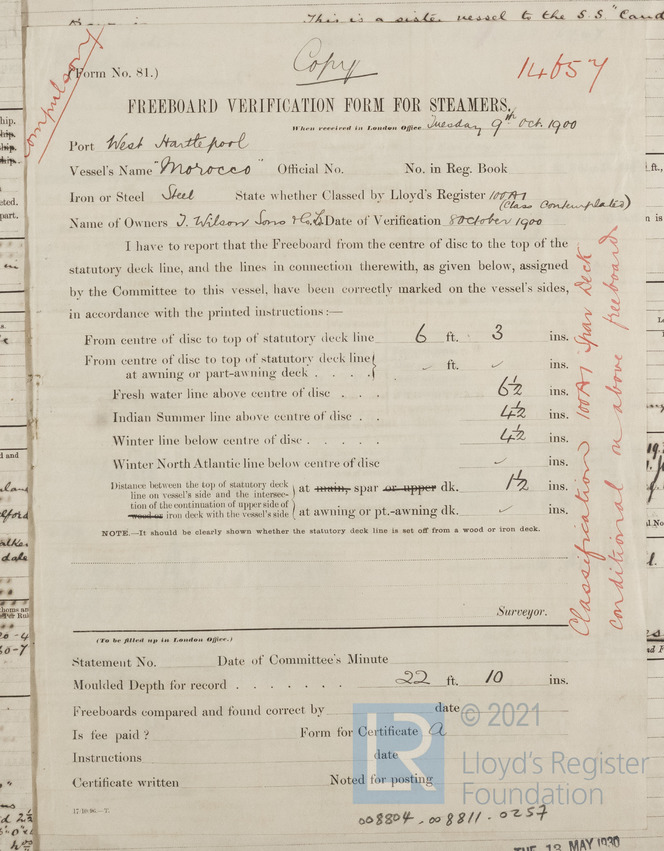 This is a sister vessel to the S.S. "Cand
Compulsory
Copy
14657
(Form No. 81.)
FREEBOARD VERIFICATION FORM FOR STEAMERS.
When received in London Office Tuesday 9th Oct. 1900
Port West Hartlepool
Vessel's Name "Morocco" Official No. No. in Reg. Book
Iron or Steel Steel State whether Classed by Lloyd's Register 100A1
(Class Contemplated)
Name of Owners T. Wilson Sons & Co. Ld Date of Verification 8 October 1900
I have to report that the Freeboard from the centre of disc to the top of the
statutory deck line, and the lines in connection therewith, as given below, assigned
by the Committee to this vessel, have been correctly marked on the vessel's sides,
in accordance with the printed instructions :—
From centre of disc to top of statutory deck line 6 ft. 3 ins.
From centre of disc to top of statutory deck line
at awning or part-awning deck . . . . ft. ins.
Fresh water line above centre of disc . . . 6½ ins.
Indian Summer line above centre of disc . . 4½ ins.
Winter line below centre of disc . . . . . 4½ ins.
Winter North Atlantic line below centre of disc ins.
Distance between the top of statutory deck
line on vessel's side and the intersec-
tion of the continuation of upper side of
wood or iron deck with the vessel's side
at main, spar or upper dk. 1½ ins.
at awning or pt.-awning dk. ins.
NOTE.—It should be clearly shown whether the statutory deck line is set off from a wood or iron deck.
Classification 100A1 Spar Deck
conditional on above freeboard
Surveyor.
(To be filled up in London Office.)
Statement No. Date of Committee's Minute
Moulded Depth for record . . . . . . . 22 ft. 10 ins.
Freeboards compared and found correct by date
Is fee paid ? Form for Certificate A
Instructions date
Certificate written Noted for posting
17·10·96.—T.
008804-008811-0257
LR
© 2021
Lloyd's Register
Foundation
TUE 13 MAY 1930